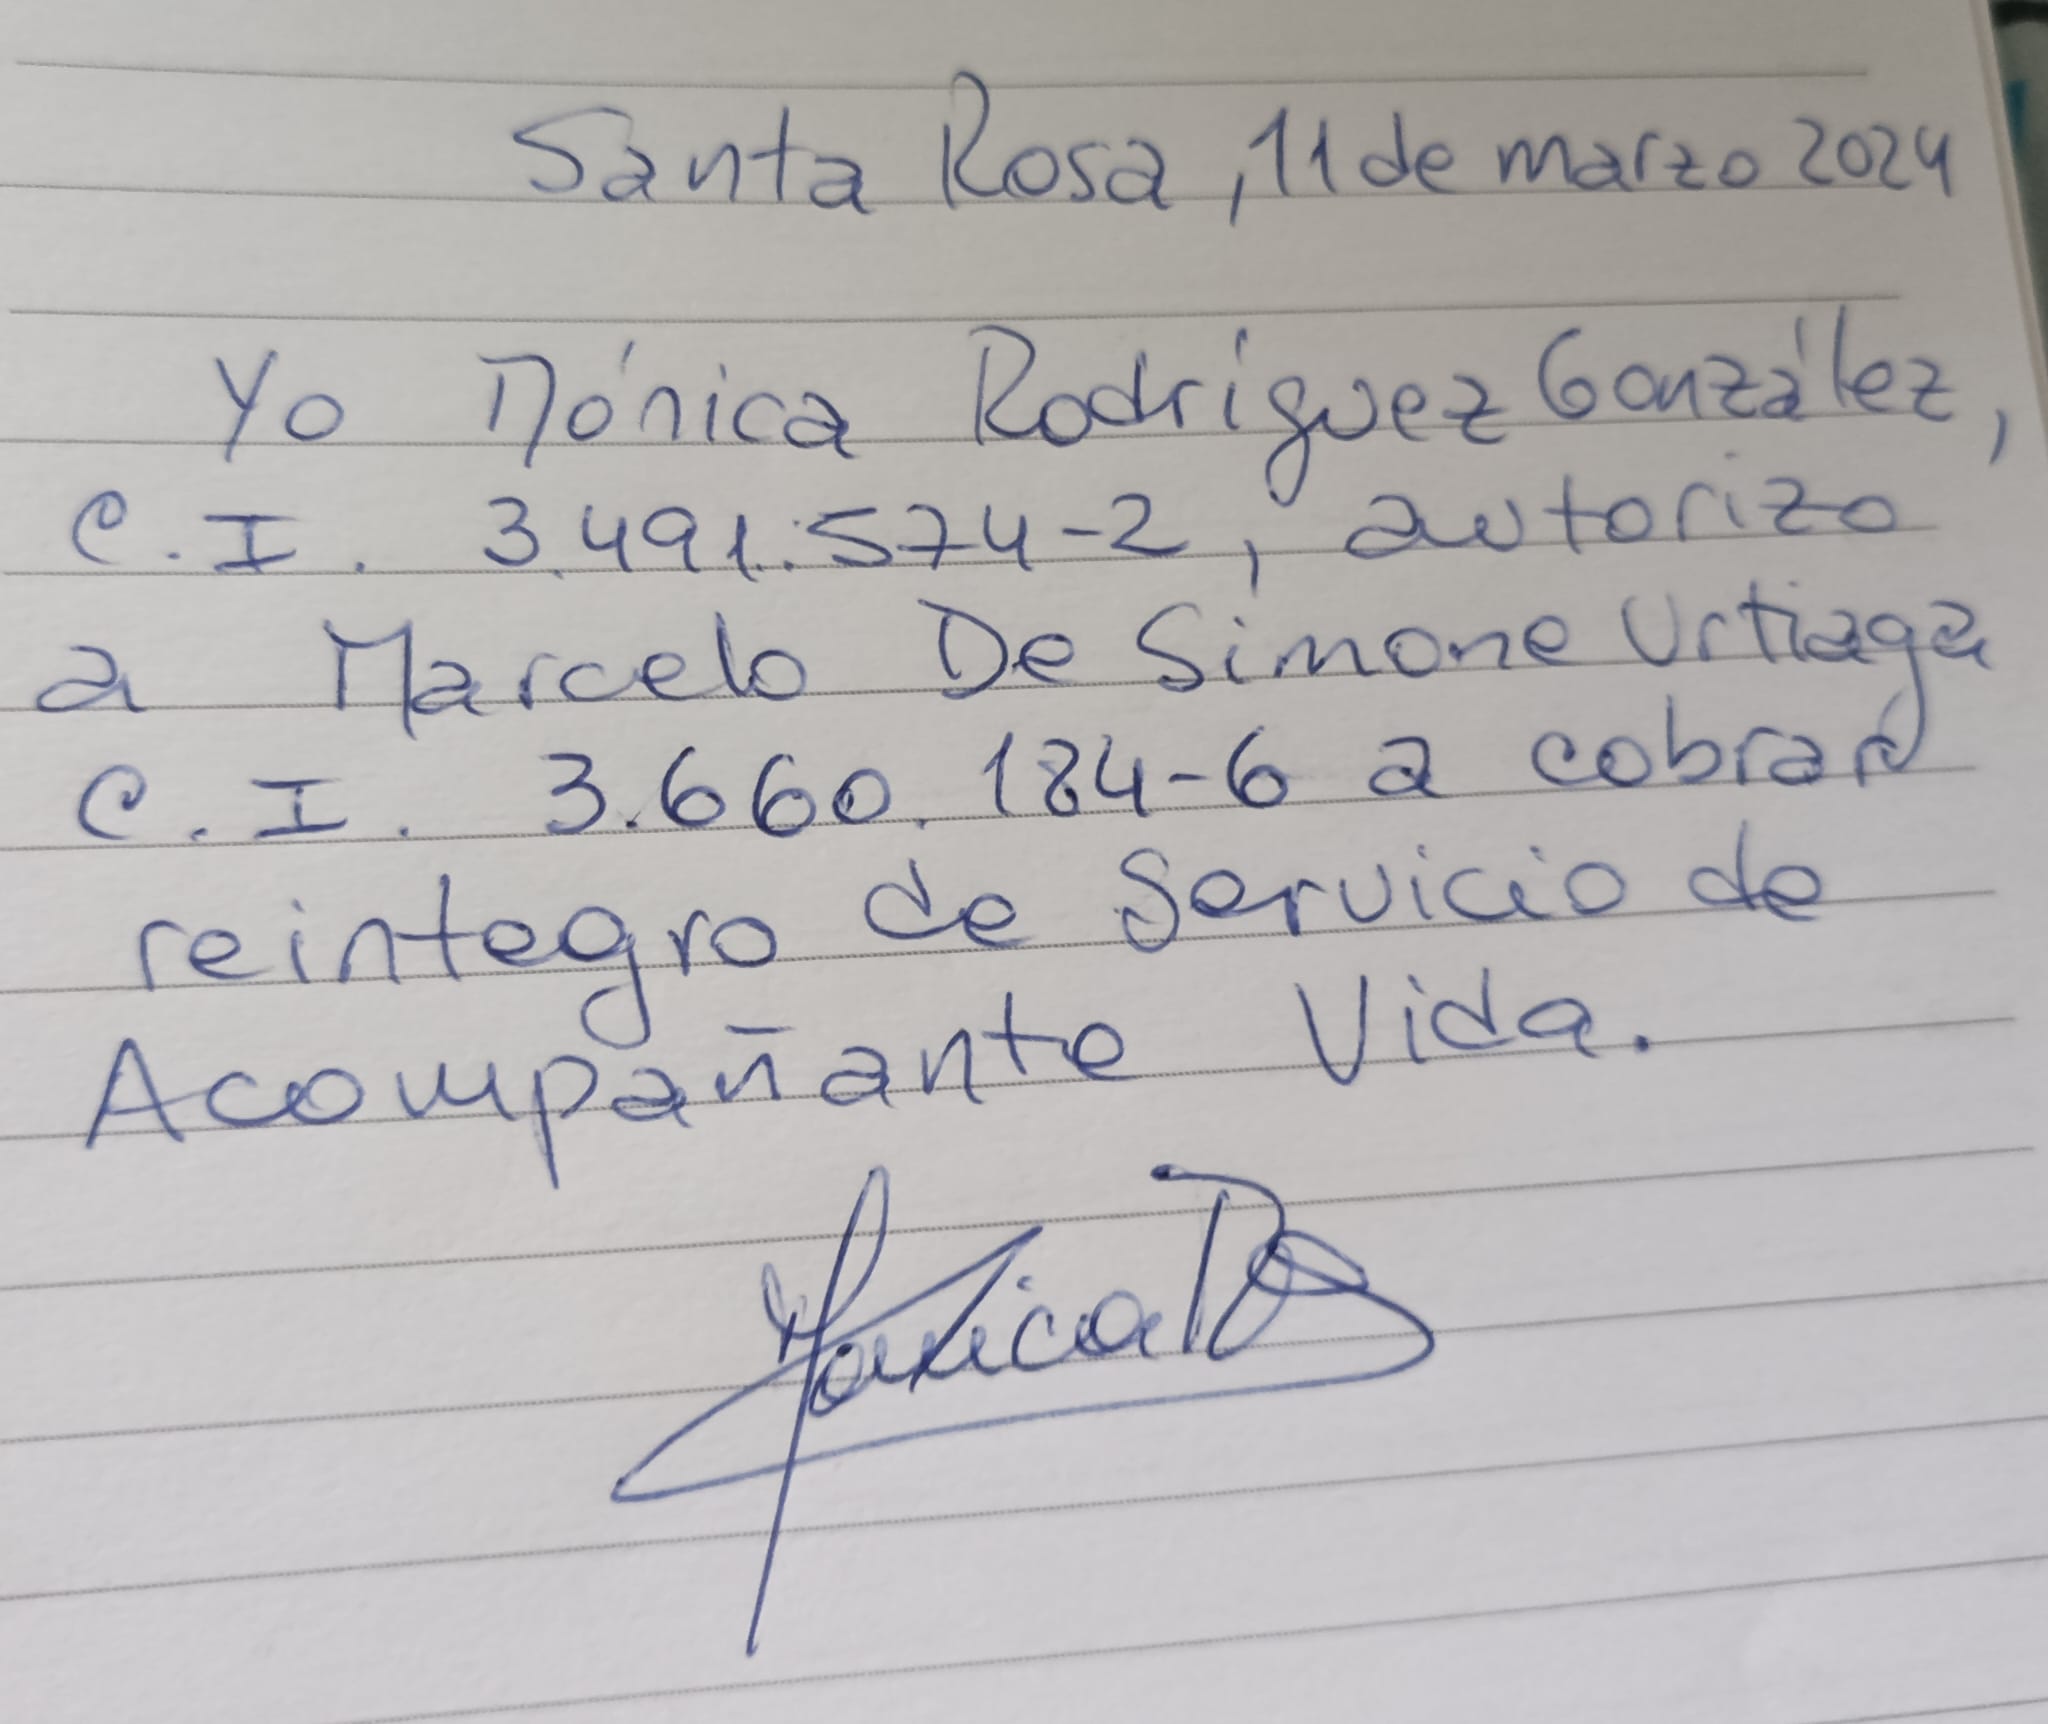 Santa Rosa, 11 de marzo 2024
Yo Mónica Rodríguez González,
C.I. 3.491.574-2, autorizo
a Marcelo De Simone Urtiaga
C.I. 3.660.184-6 a cobrar
reintegro de Servicio de
Acompañante Vida.
Monica